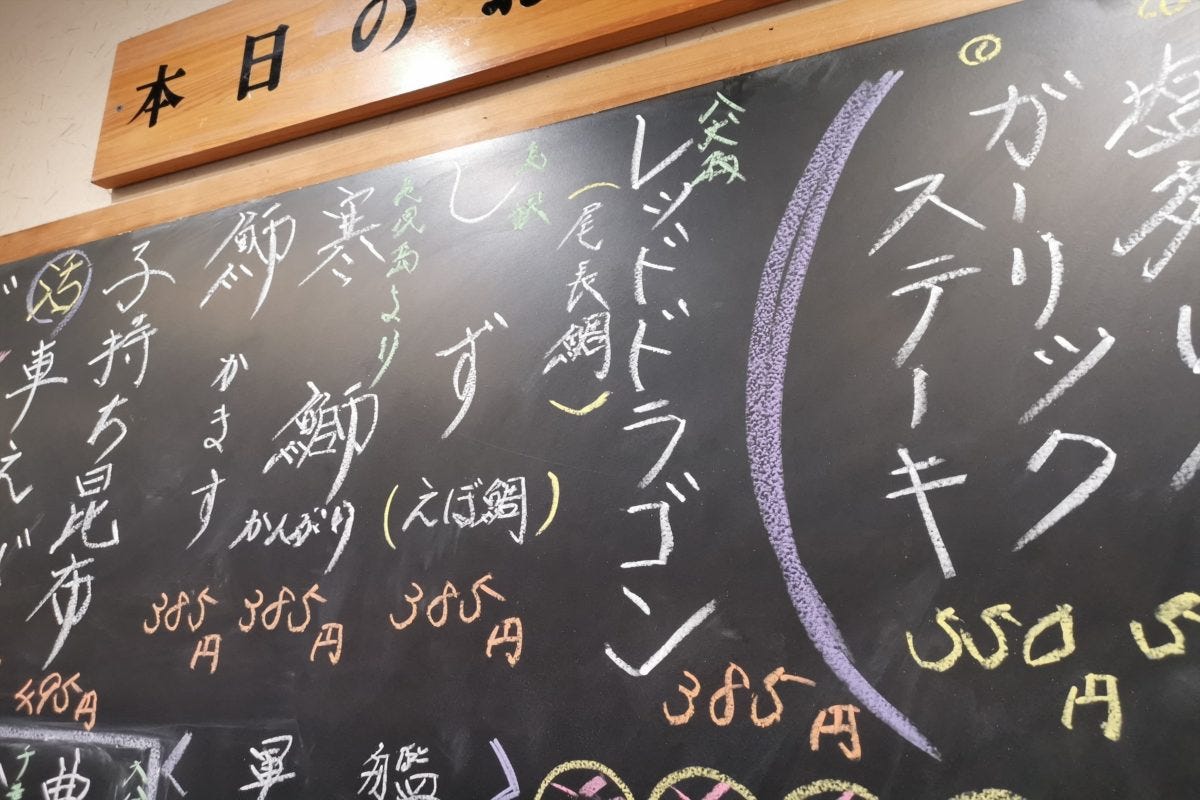 本日の
塩
ガーリック
ステーキ
550円
八丈島
レッドドラゴン
（尾長鯛）
385円
しず
（えぼ鯛）
385円
鹿児島より
寒鰤
かんぶり
385円
鰤かます
385円
子持ち昆布
495円
活
車えび
＜軍艦＞